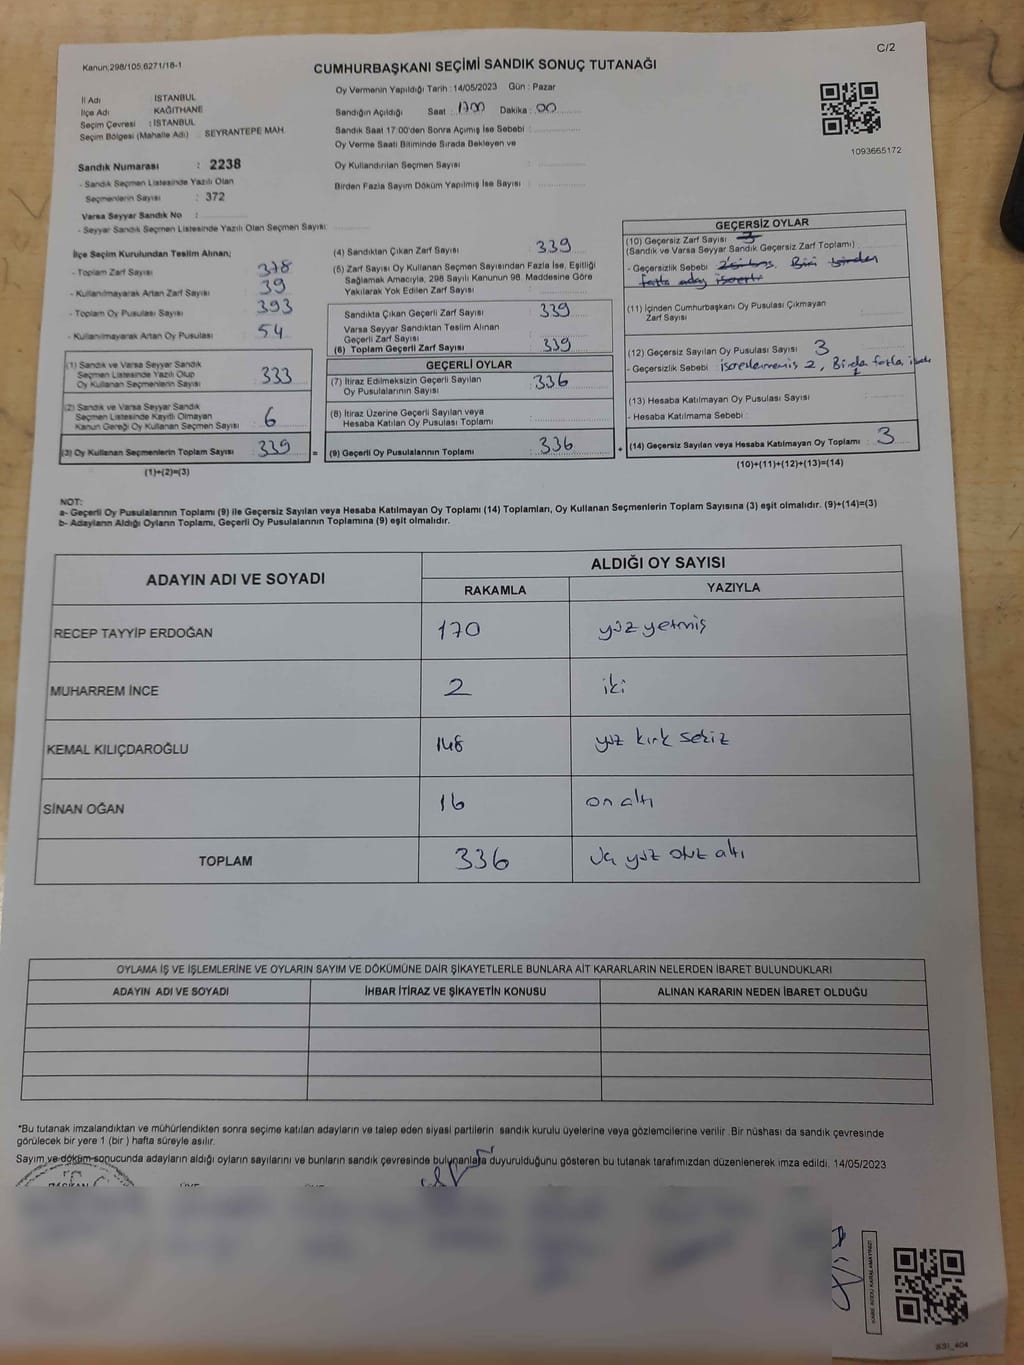 C/2
Kanun;298/105;6271/18-1
CUMHURBAŞKANI SEÇİMİ SANDIK SONUÇ TUTANAĞI
İl Adı İSTANBUL
İlçe Adı KAĞITHANE
Seçim Çevresi : İSTANBUL
Seçim Bölgesi (Mahalle Adı) : SEYRANTEPE MAH.
Sandık Numarası : 2238
- Sandık Seçmen Listesinde Yazılı Olan
Seçmenlerin Sayısı : 372
Varsa Seyyar Sandık No :
- Seyyar Sandık Seçmen Listesinde Yazılı Olan Seçmen Sayısı
Oy Vermenin Yapıldığı Tarih : 14/05/2023 Gün : Pazar
Sandığın Açıldığı Saat : 17:00 Dakika : 00
Sandık Saat 17:00'den Sonra Açımış İse Sebebi :
Oy Verme Saati Bitiminde Sırada Bekleyen ve
Oy Kullandırılan Seçmen Sayısı :
Birden Fazla Sayım Döküm Yapılmış İse Sayısı :
1093665172
İlçe Seçim Kurulundan Teslim Alınan;
- Toplam Zarf Sayısı 378
- Kullanılmayarak Artan Zarf Sayısı : 39
- Toplam Oy Pusulası Sayısı 393
- Kullanılmayarak Artan Oy Pusulası : 54
(1) Sandık ve Varsa Seyyar Sandık
Seçmen Listesinde Yazılı Olup
Oy Kullanan Seçmenlerin Sayısı : 333
(2) Sandık ve Varsa Seyyar Sandık
Seçmen Listesinde Kayıtlı Olmayan
Kanun Gereği Oy Kullanan Seçmen Sayısı : 6
(3) Oy Kullanan Seçmenlerin Toplam Sayısı : 339 =
(1)+(2)=(3)
(4) Sandıktan Çıkan Zarf Sayısı : 339
(5) Zarf Sayısı Oy Kullanan Seçmen Sayısından Fazla İse, Eşitliği
Sağlamak Amacıyla, 298 Sayılı Kanunun 98. Maddesine Göre
Yakılarak Yok Edilen Zarf Sayısı :
Sandıkta Çıkan Geçerli Zarf Sayısı : 339
Varsa Seyyar Sandıktan Teslim Alınan
Geçerli Zarf Sayısı
(6) Toplam Geçerli Zarf Sayısı : 339
GEÇERLİ OYLAR
(7) İtiraz Edilmeksizin Geçerli Sayılan
Oy Pusulalarının Sayısı : 336
(8) İtiraz Üzerine Geçerli Sayılan veya
Hesaba Katılan Oy Pusulası Toplamı :
(9) Geçerli Oy Pusulalarının Toplamı : 336 +
GEÇERSİZ OYLAR
(10) Geçersiz Zarf Sayısı 3
(Sandık ve Varsa Seyyar Sandık Geçersiz Zarf Toplamı)
- Geçersizlik Sebebi 2'si boş. Biri birden
fazla aday işaretli
(11) İçinden Cumhurbaşkanı Oy Pusulası Çıkmayan
Zarf Sayısı
(12) Geçersiz Sayılan Oy Pusulası Sayısı : 3
- Geçersizlik Sebebi işaretlenmemiş 2, Birden fazla
(13) Hesaba Katılmayan Oy Pusulası Sayısı :
- Hesaba Katılmama Sebebi :
(14) Geçersiz Sayılan veya Hesaba Katılmayan Oy Toplamı : 3
(10)+(11)+(12)+(13)=(14)
NOT:
a- Geçerli Oy Pusulalarının Toplamı (9) ile Geçersiz Sayılan veya Hesaba Katılmayan Oy Toplamı (14) Toplamları, Oy Kullanan Seçmenlerin Toplam Sayısına (3) eşit olmalıdır. (9)+(14)=(3)
b- Adayların Aldığı Oyların Toplamı, Geçerli Oy Pusulalarının Toplamına (9) eşit olmalıdır.
ADAYIN ADI VE SOYADI ALDIĞI OY SAYISI
RAKAMLA YAZIYLA
RECEP TAYYİP ERDOĞAN 170 yüz yetmiş
MUHARREM İNCE 2 iki
KEMAL KILIÇDAROĞLU 148 yüz kırk sekiz
SİNAN OĞAN 16 on altı
TOPLAM 336 üç yüz otuz altı
OYLAMA İŞ VE İŞLEMLERİNE VE OYLARIN SAYIM VE DÖKÜMÜNE DAİR ŞİKAYETLERLE BUNLARA AİT KARARLARIN NELERDEN İBARET BULUNDUKLARI
ADAYIN ADI VE SOYADI İHBAR İTİRAZ VE ŞİKAYETİN KONUSU ALINAN KARARIN NEDEN İBARET OLDUĞU
*Bu tutanak imzalandıktan ve mühürlendikten sonra seçime katılan adayların ve talep eden siyasi partilerin sandık kurulu üyelerine veya gözlemcilerine verilir .Bir nüshası da sandık çevresinde
görülecek bir yere 1 (bir ) hafta süreyle asılır.
Sayım ve döküm sonucunda adayların aldığı oyların sayılarını ve bunların sandık çevresinde bulunanlara duyurulduğunu gösteren bu tutanak tarafımızdan düzenlenerek imza edildi. 14/05/2023
BAŞKAN
KARE KODU KARALAMAYINIZ!